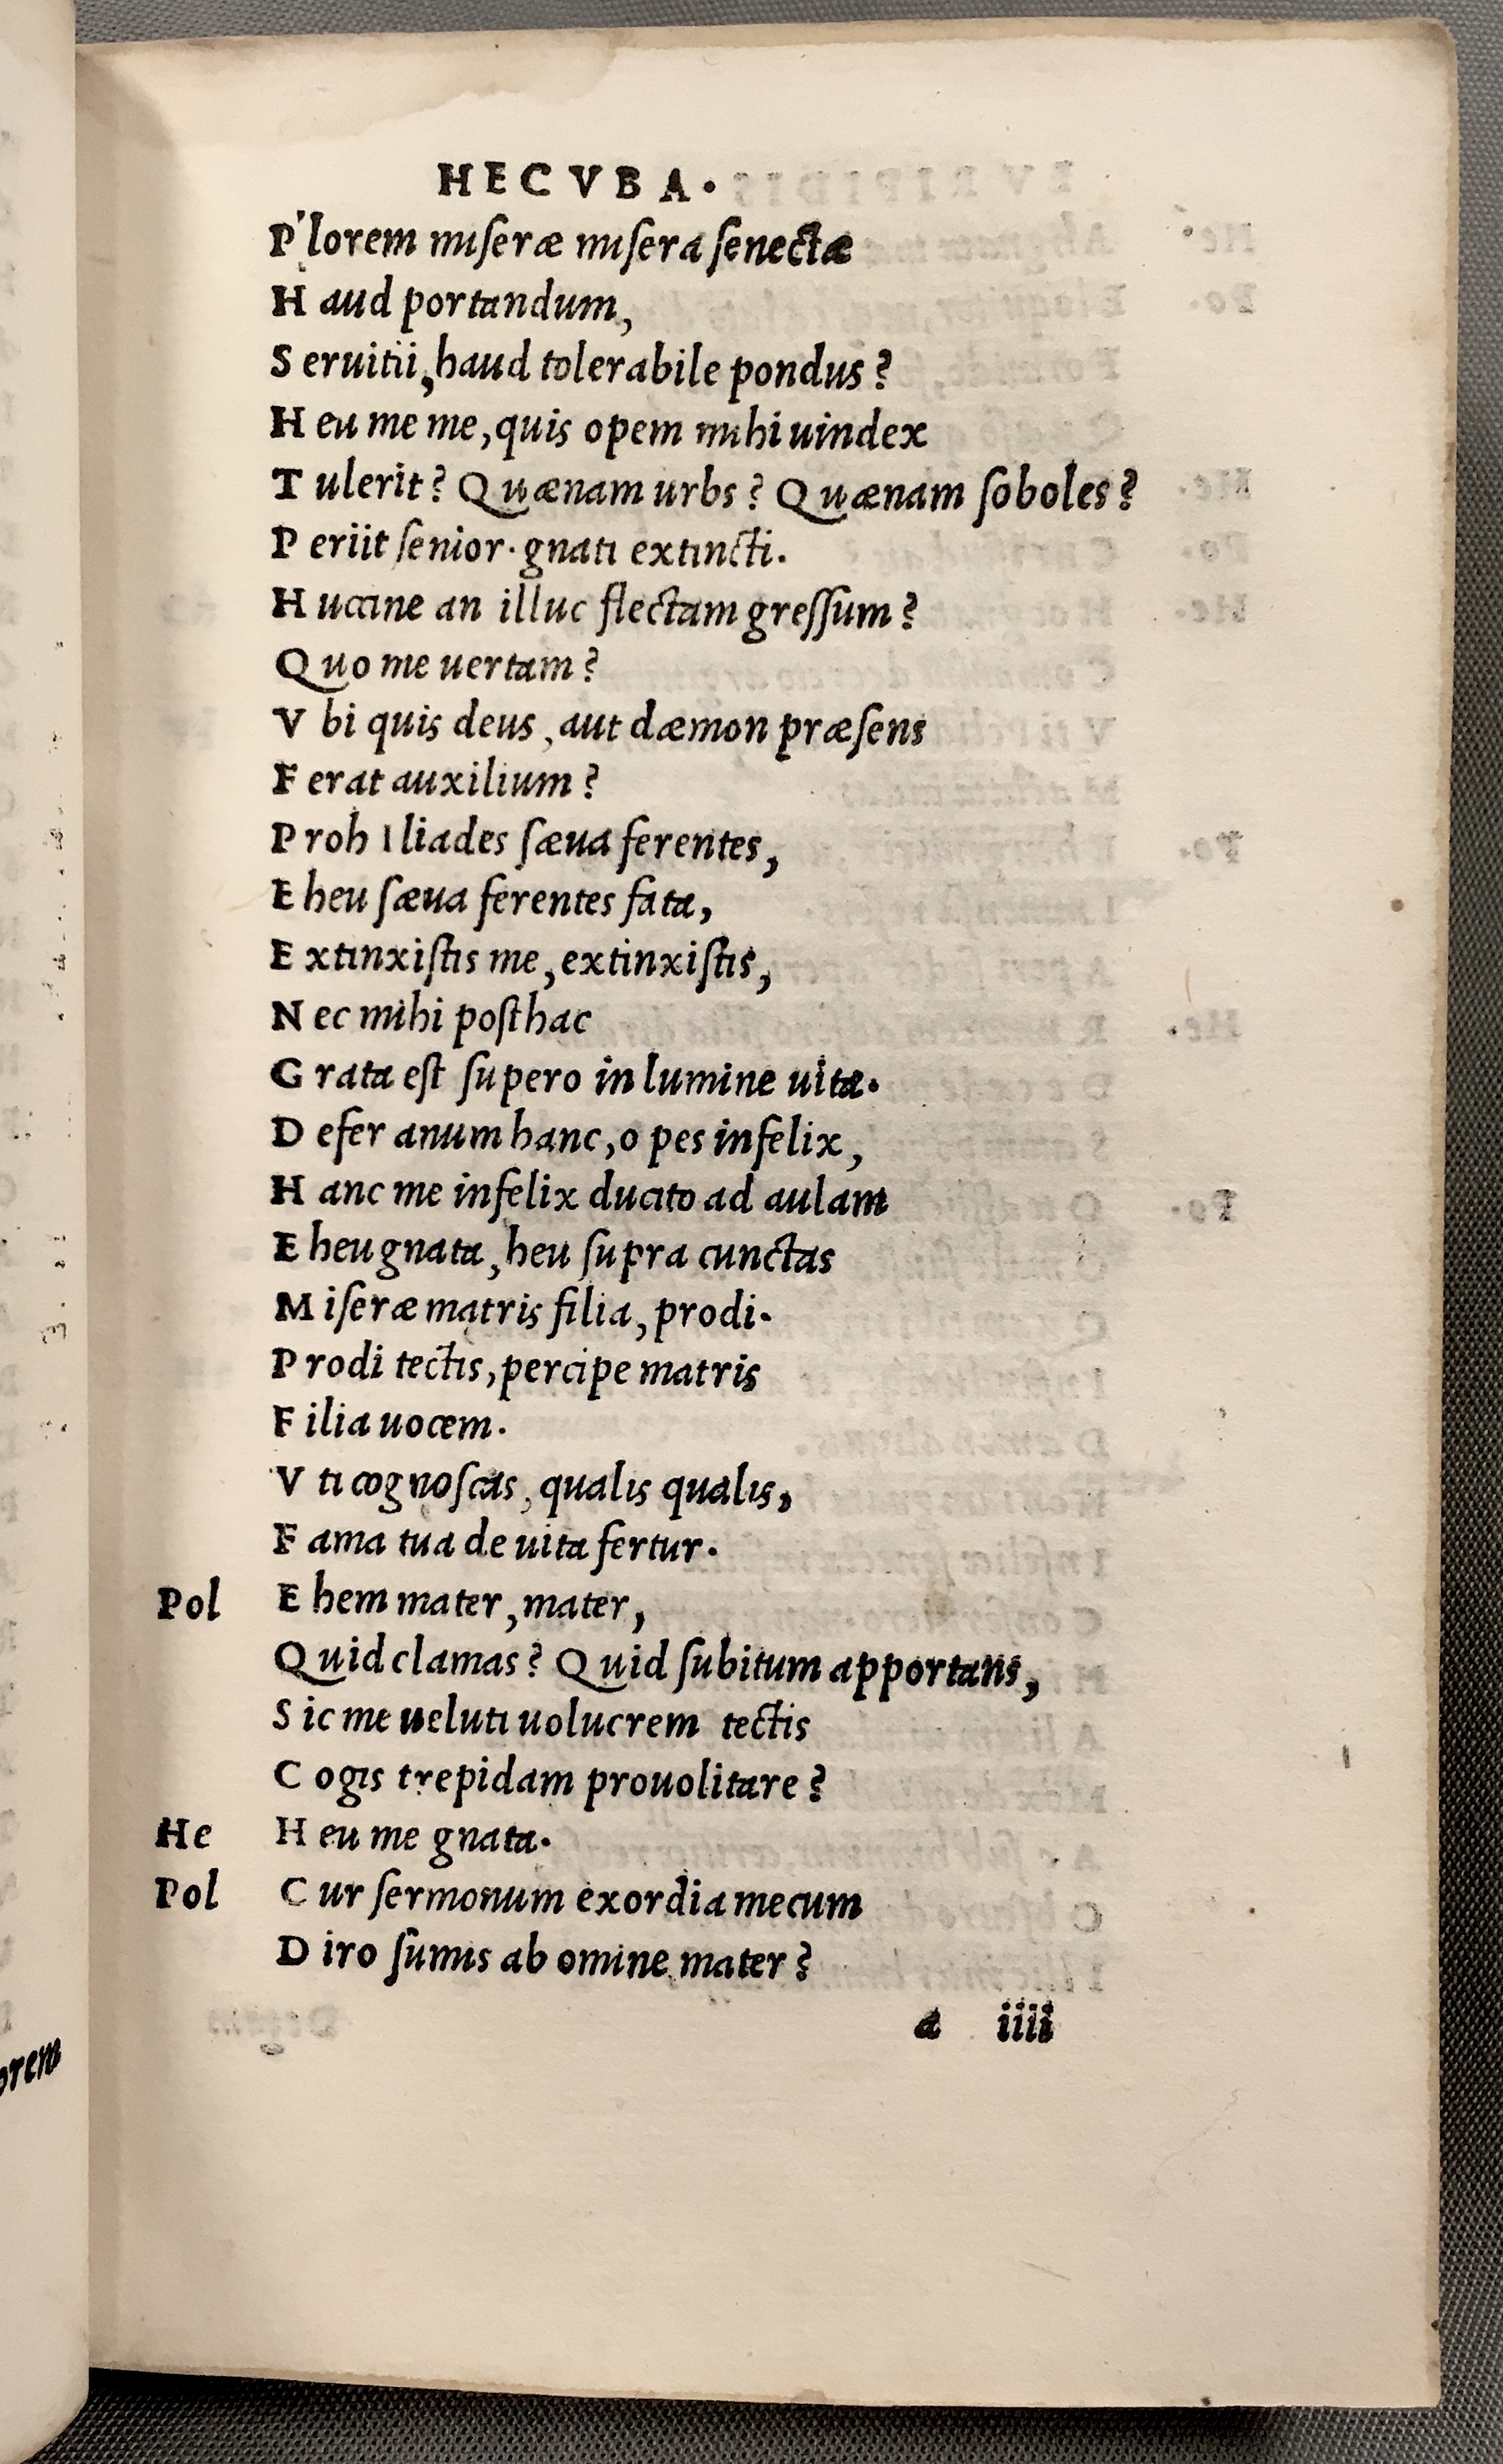 HECVBA.
Plorem miseræ misera senectæ
Haud portandum,
Seruitii, haud tolerabile pondus?
Heu me me, quis opem mihi uindex
Tulerit? Quænam urbs? Quænam soboles?
Periit senior. gnati extincti.
Huccine an illuc flectam gressum?
Quo me uertam?
Vbi quis deus, aut dæmon præsens
Ferat auxilium?
Proh Iliades sæua ferentes,
Eheu sæua ferentes fata,
Extinxistis me, extinxistis,
Nec mihi posthac
Grata est supero in lumine uita.
Defer anum hanc, o pes infelix,
Hanc me infelix ducito ad aulam
Eheu gnata, heu supra cunctas
Miseræ matris filia, prodi.
Prodi tectis, percipe matris
Filia uocem.
Vti cognoscas, qualis qualis,
Fama tua de uita fertur.
Pol Ehem mater, mater,
Quid clamas? Quid subitum apportans,
Sic me ueluti uolucrem tectis
Cogis trepidam prouolitare?
He Heu me gnata.
Pol Cur sermonum exordia mecum
Diro sumis ab omine mater?
a iiii